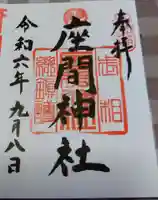 奉拝
座間神社
令和六年九月八日